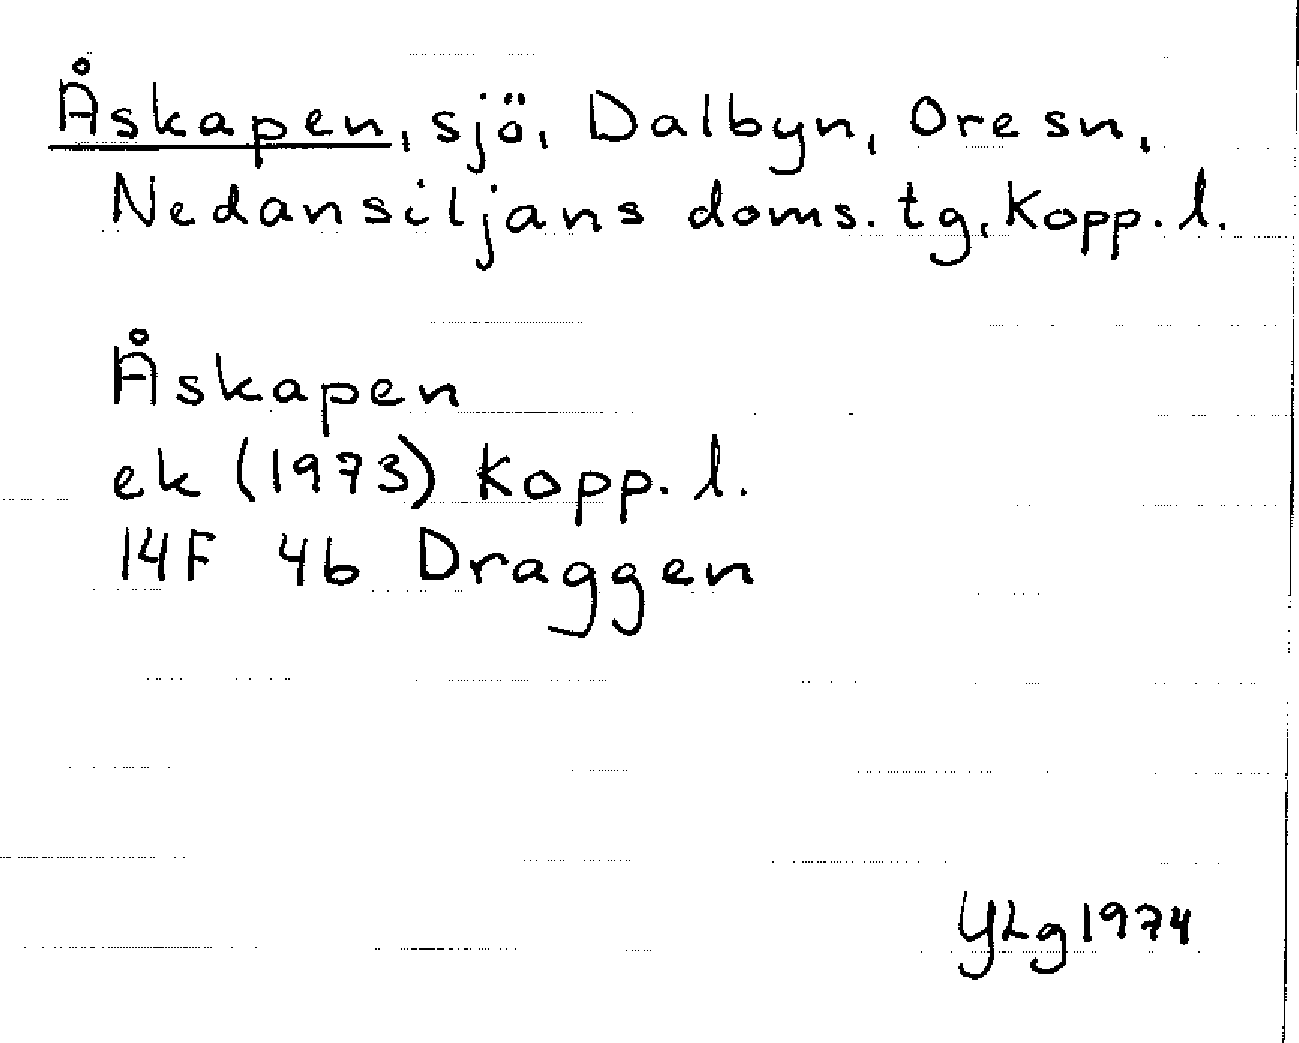 Åskapen, sjö, Dalbyn, Ore sn,
Nedansiljans doms. tg, Kopp. l.
Åskapen
ek (1973) Kopp. l.
14F 4b Draggen
YLg 1974